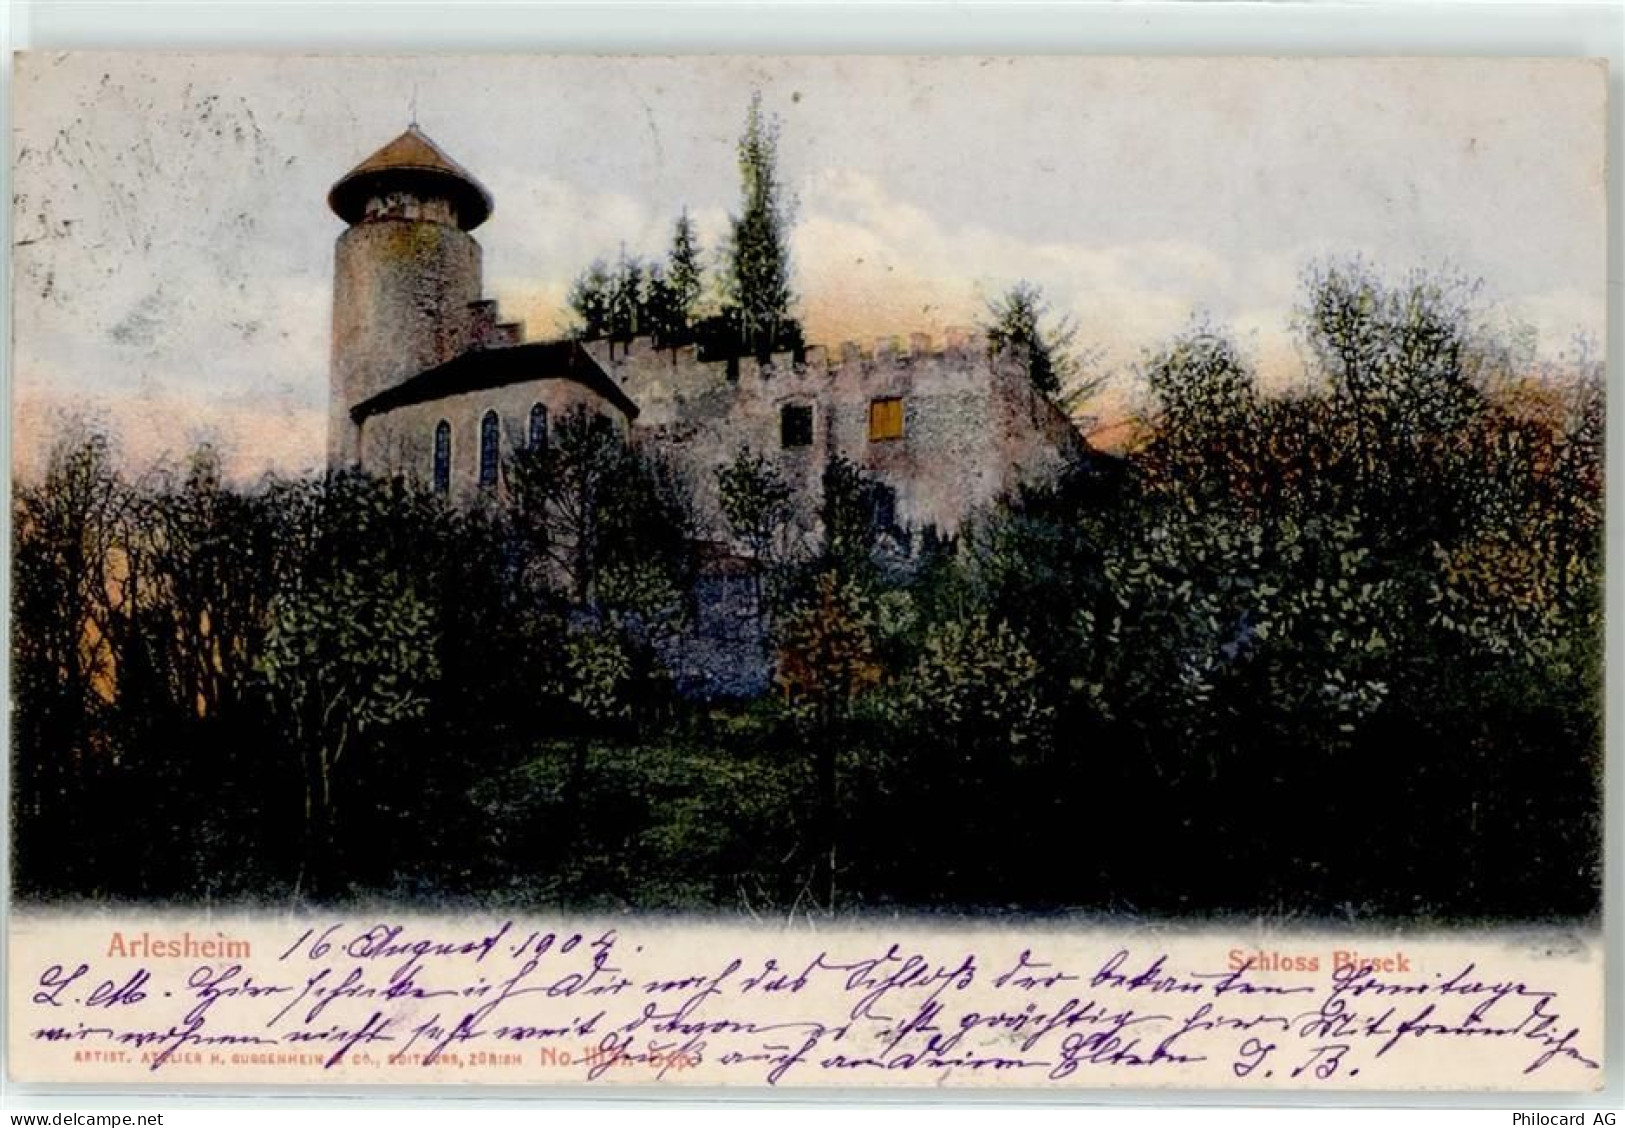 Arlesheim 16. August 1904. Schloss Birsek
L. M. Hier schicke ich Dir noch das Schloß der bekannten Ermitage
wir wohnen nicht sehr weit davon es ist prächtig hier Mit freundliche
Gruß auch an Deine Eltern J. B.
ARTIST. ATELIER H. GUGGENHEIM & CO., EDITEURS, ZÜRICH No. Dep.
Philocard AG